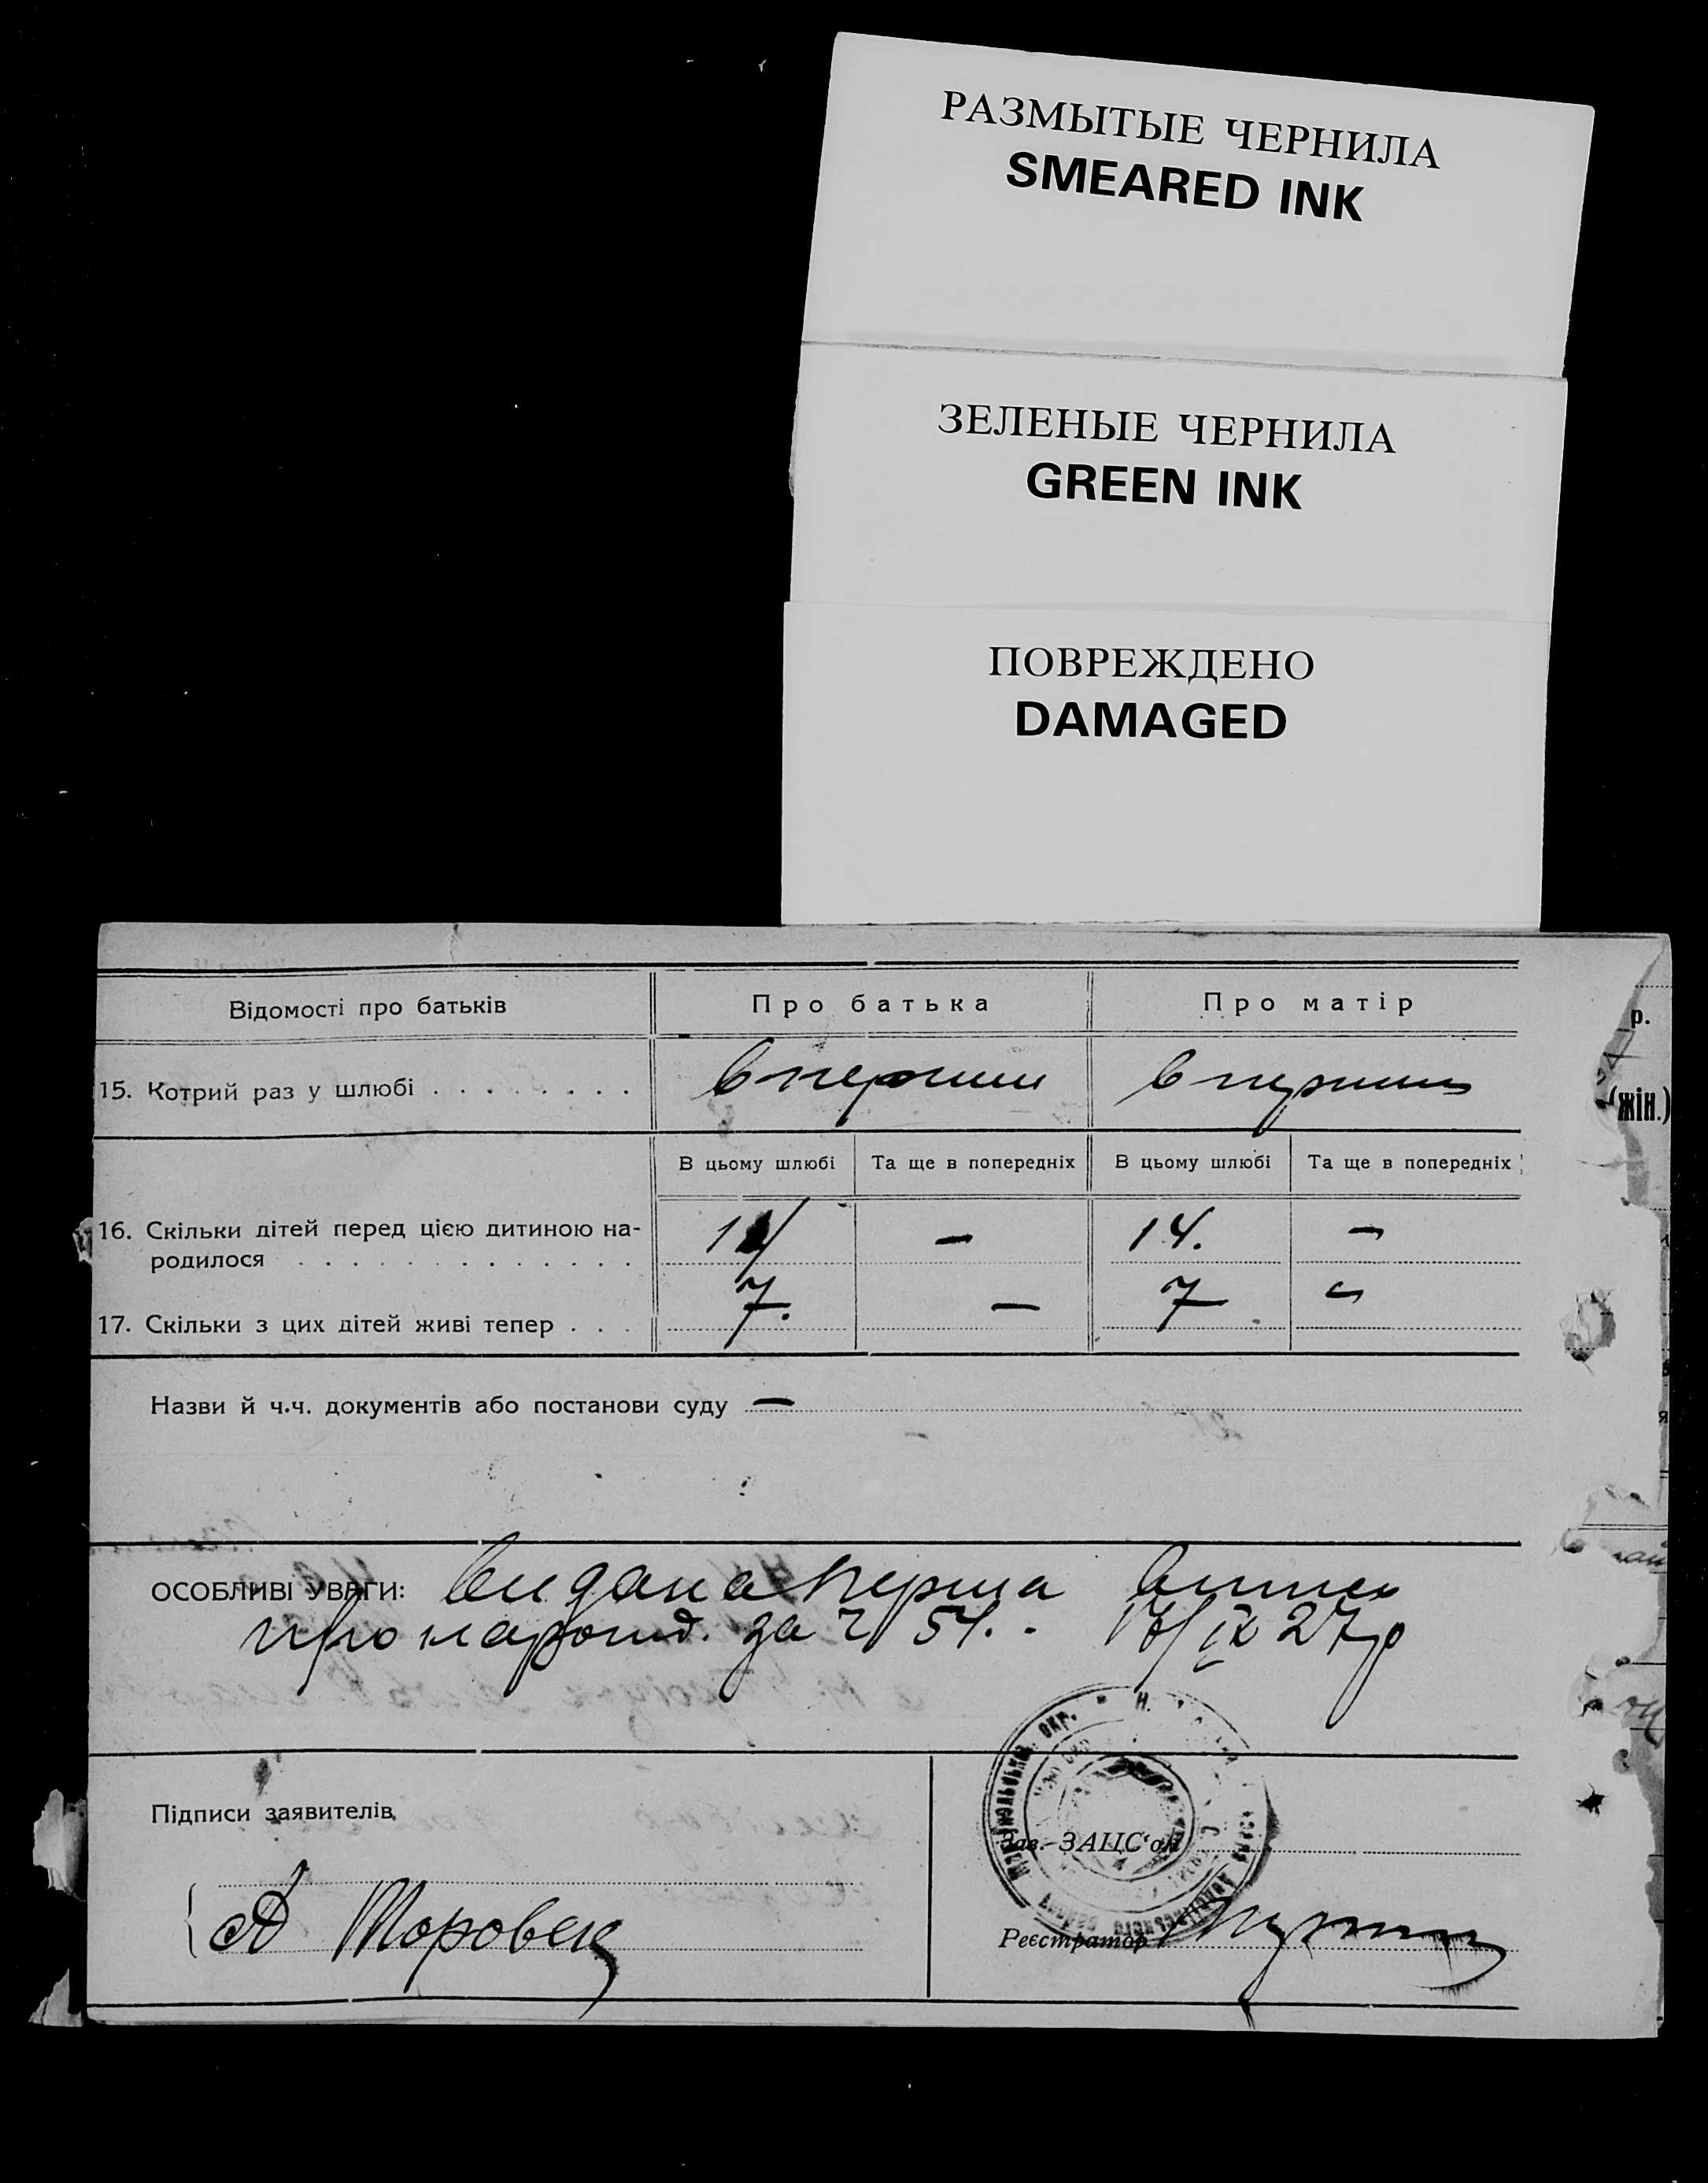 РАЗМЫТЫЕ ЧЕРНИЛА
SMEARED INK
ЗЕЛЕНЫЕ ЧЕРНИЛА
GREEN INK
ПОВРЕЖДЕНО
DAMAGED
Відомості про батьків Про батька Про матір
р.
15. Котрий раз у шлюбі . . . . . . . . вперше вперше
(жін.)
В цьому шлюбі Та ще в попередніх В цьому шлюбі Та ще в попередніх
16. Скільки дітей перед цією дитиною на-
родилося . . . . . . . . . . . . . 14 — 14. —
17. Скільки з цих дітей живі тепер . . . 7. — 7 —
Назви й ч.ч. документів або постанови суду —
ОСОБЛИВІ УВАГИ: видана перша
про народ. за ч 54. IX 27р
окр.
Підписи заявителів
Зав. ЗАЦС'ом
А
Реєстратор